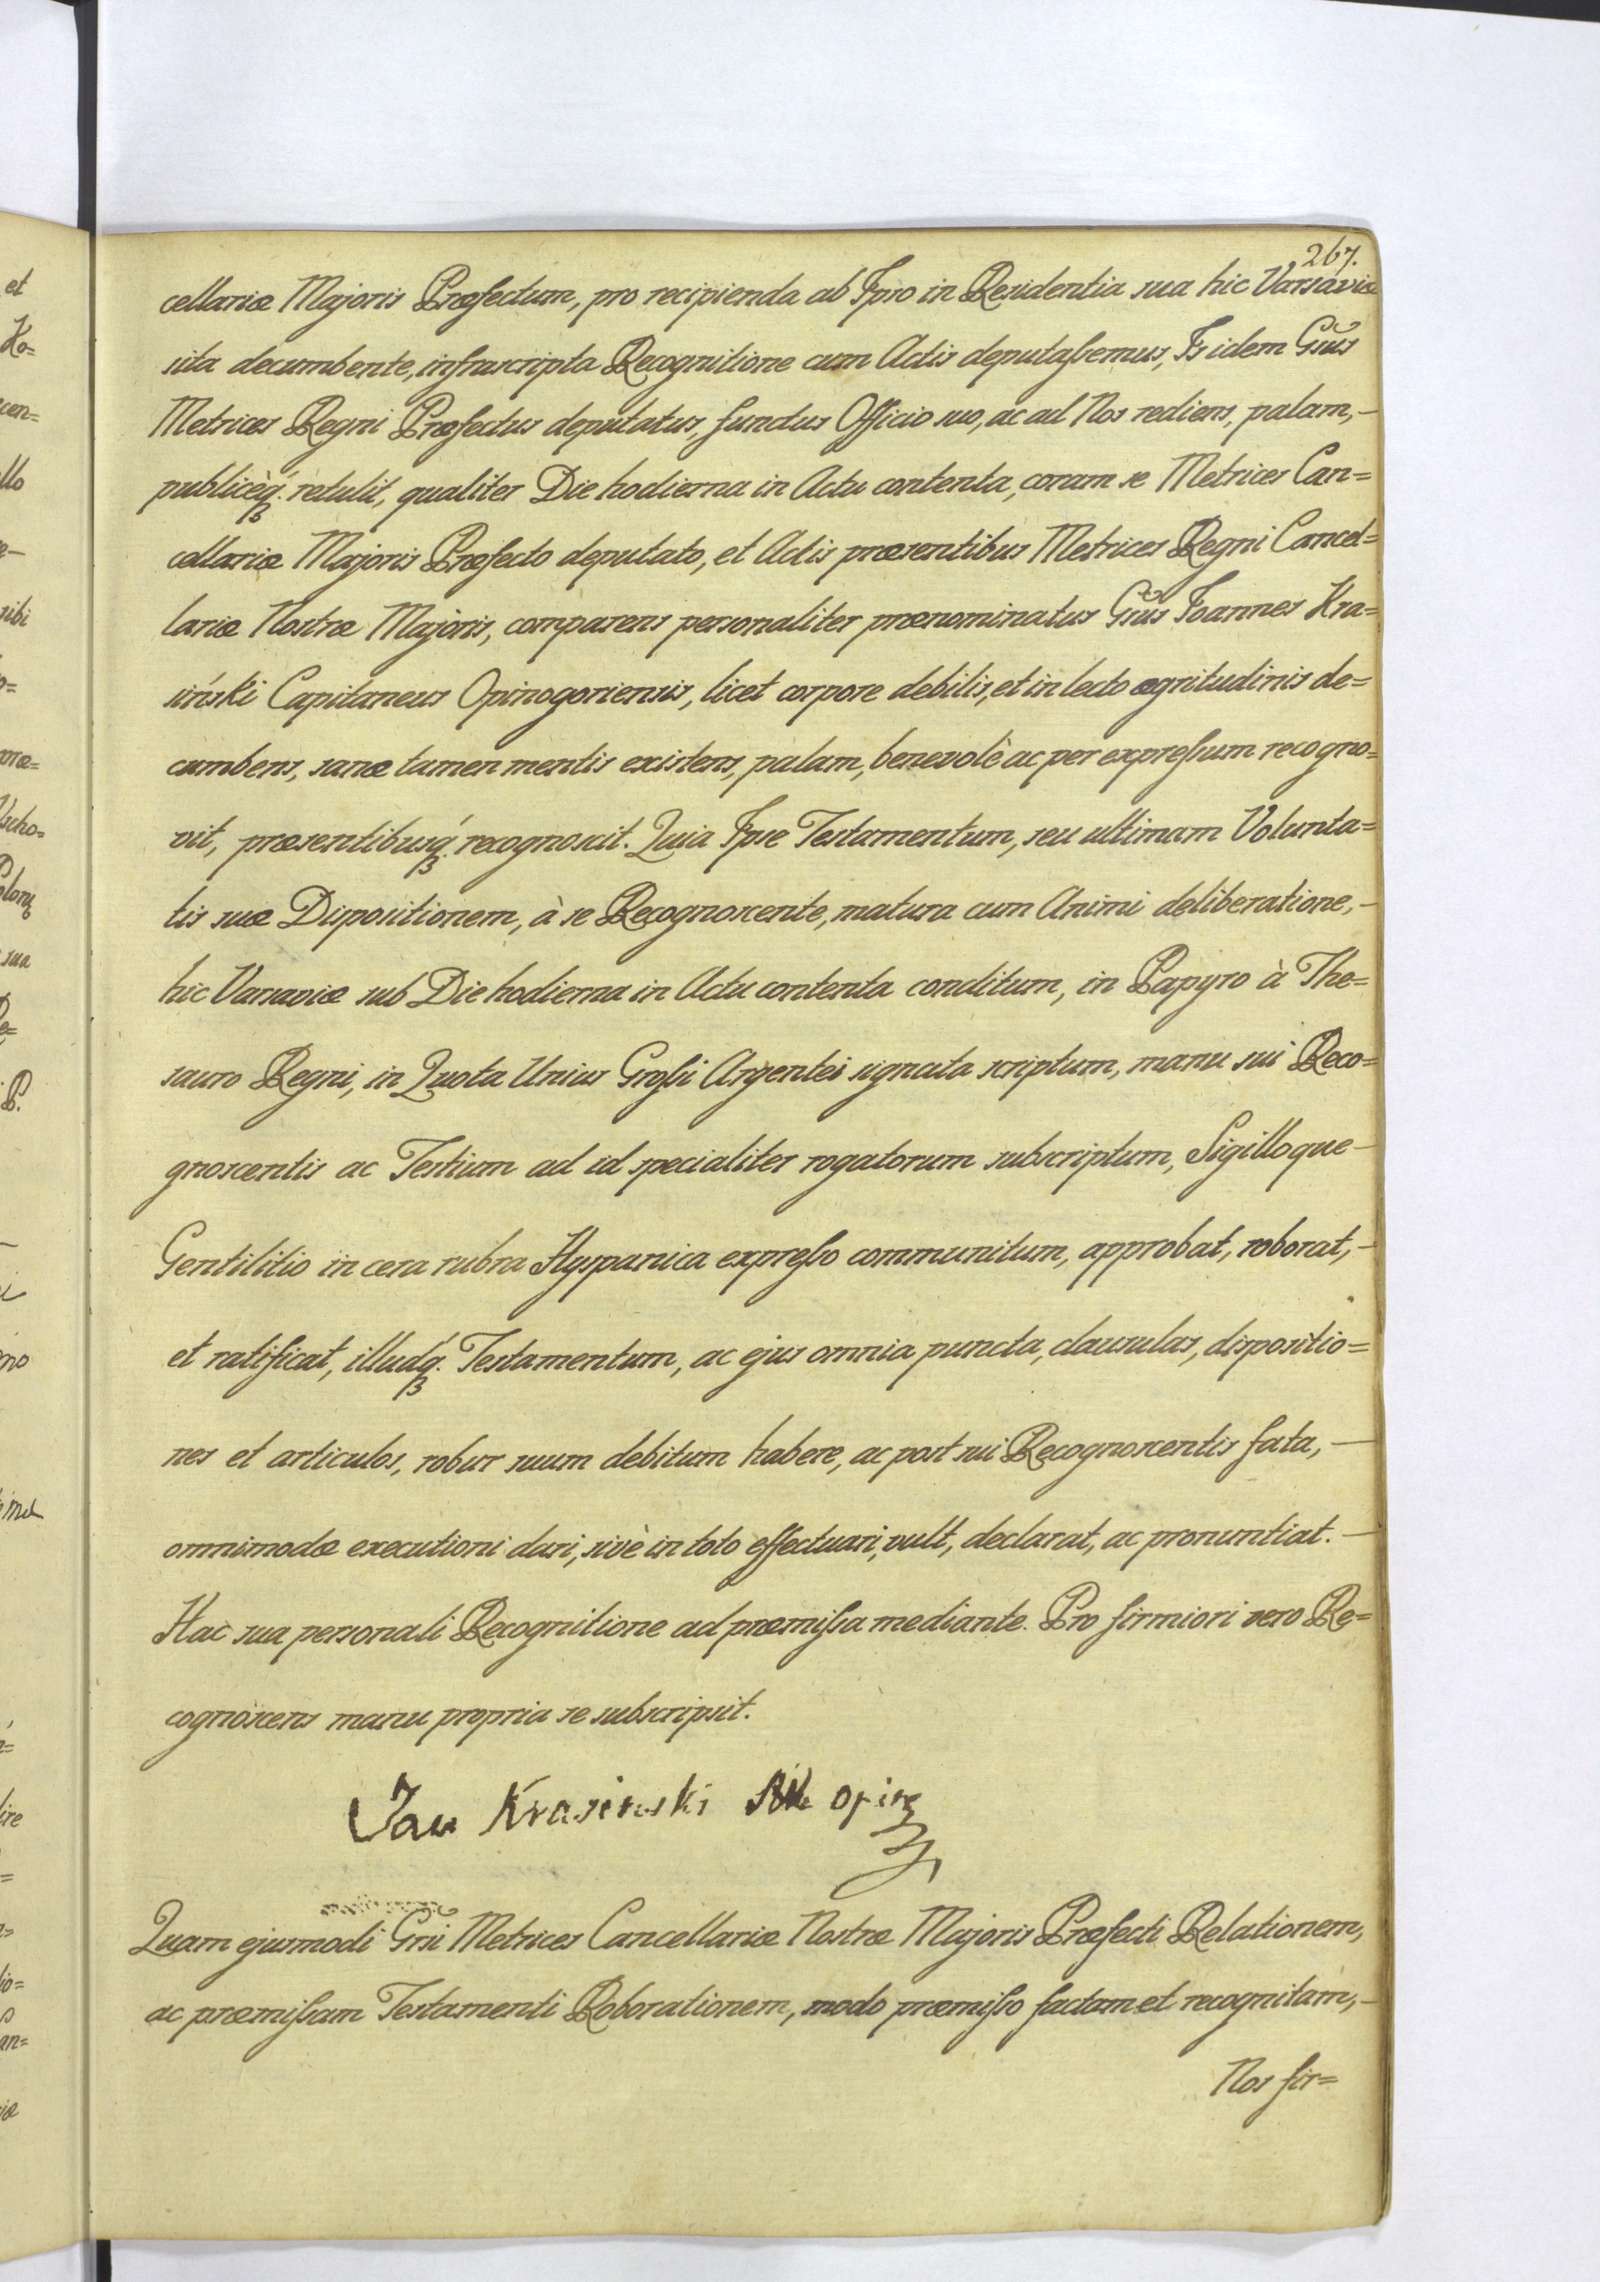 267.
cellariæ Majoris Præfectum, pro recipienda ab Ipso in Residentia sua hic Varsaviæ
sita decumbente, infrascripta Recognitione cum Actis deputassemus, Is idem Gsus
Metrices Regni Præfectus deputatus, functus Officio suo, ac ad Nos rediens, palam,
publicèq; retulit, qualiter Die hodierna in Actu contenta, coram se Metrices Can=
cellariæ Majoris Præfecto deputato, et Actis præsentibus Metrices Regni Cancel=
lariæ Nostræ Majoris, comparens personaliter prænominatus Gsus Joannes Kra=
siński Capitaneus Opinogoriensis, licet corpore debilis, et in lecto ægritudinis de=
cumbens, sanæ tamen mentis existens, palam, benevolè ac per expressum recogno=
vit, præsentibusq; recognoscit. Quia Ipse Testamentum, seu ultimam Volunta=
tis suæ Dispositionem, à se Recognoscente, matura cum Animi deliberatione,
hic Varsaviæ sub Die hodierna in Actu contenta conditum, in Papyro à The=
sauro Regni, in Quota Unius Grossi Argentei signata scriptum, manu sui Reco=
gnoscentis ac Testium ad id specialiter rogatorum subscriptum, Sigilloque
Gentilitio in cera rubra Hyspanica expresso communitum, approbat, roborat,
et ratificat, illudq; Testamentum, ac ejus omnia puncta, clausulas, dispositio=
nes et articulos, robur suum debitum habere, ac post sui Recognoscentis fata,
omnimodæ executioni dari, sivè in toto effectuari, vult, declarat, ac pronuntiat.
Hac sua personali Recognitione ad præmissa mediante. Pro firmiori vero Re=
cognoscens manu propria se subscripsit.
Jan Krasinski
Quam ejusmodi Gsi Metrices Cancellariæ Nostræ Majoris Præfecti Relationem,
ac præmissam Testamenti Roborationem, modo præmisso factam et recognitam,
Nos fir=